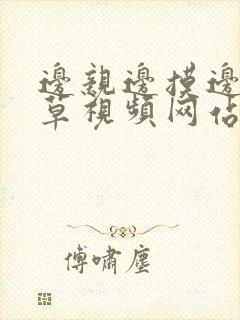 邊親邊摸邊
草視頻网佔
傅嘯塵